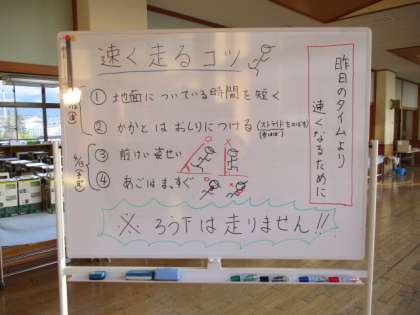 速く走るコツ
昨日のタイムより
速くなるために
① 地面についている時間を短く
② かかとはおしりにつける(ストライドをのばす)
③ 前けい姿せい
④ あごはまっすぐ
※ ろう下は走りません!!